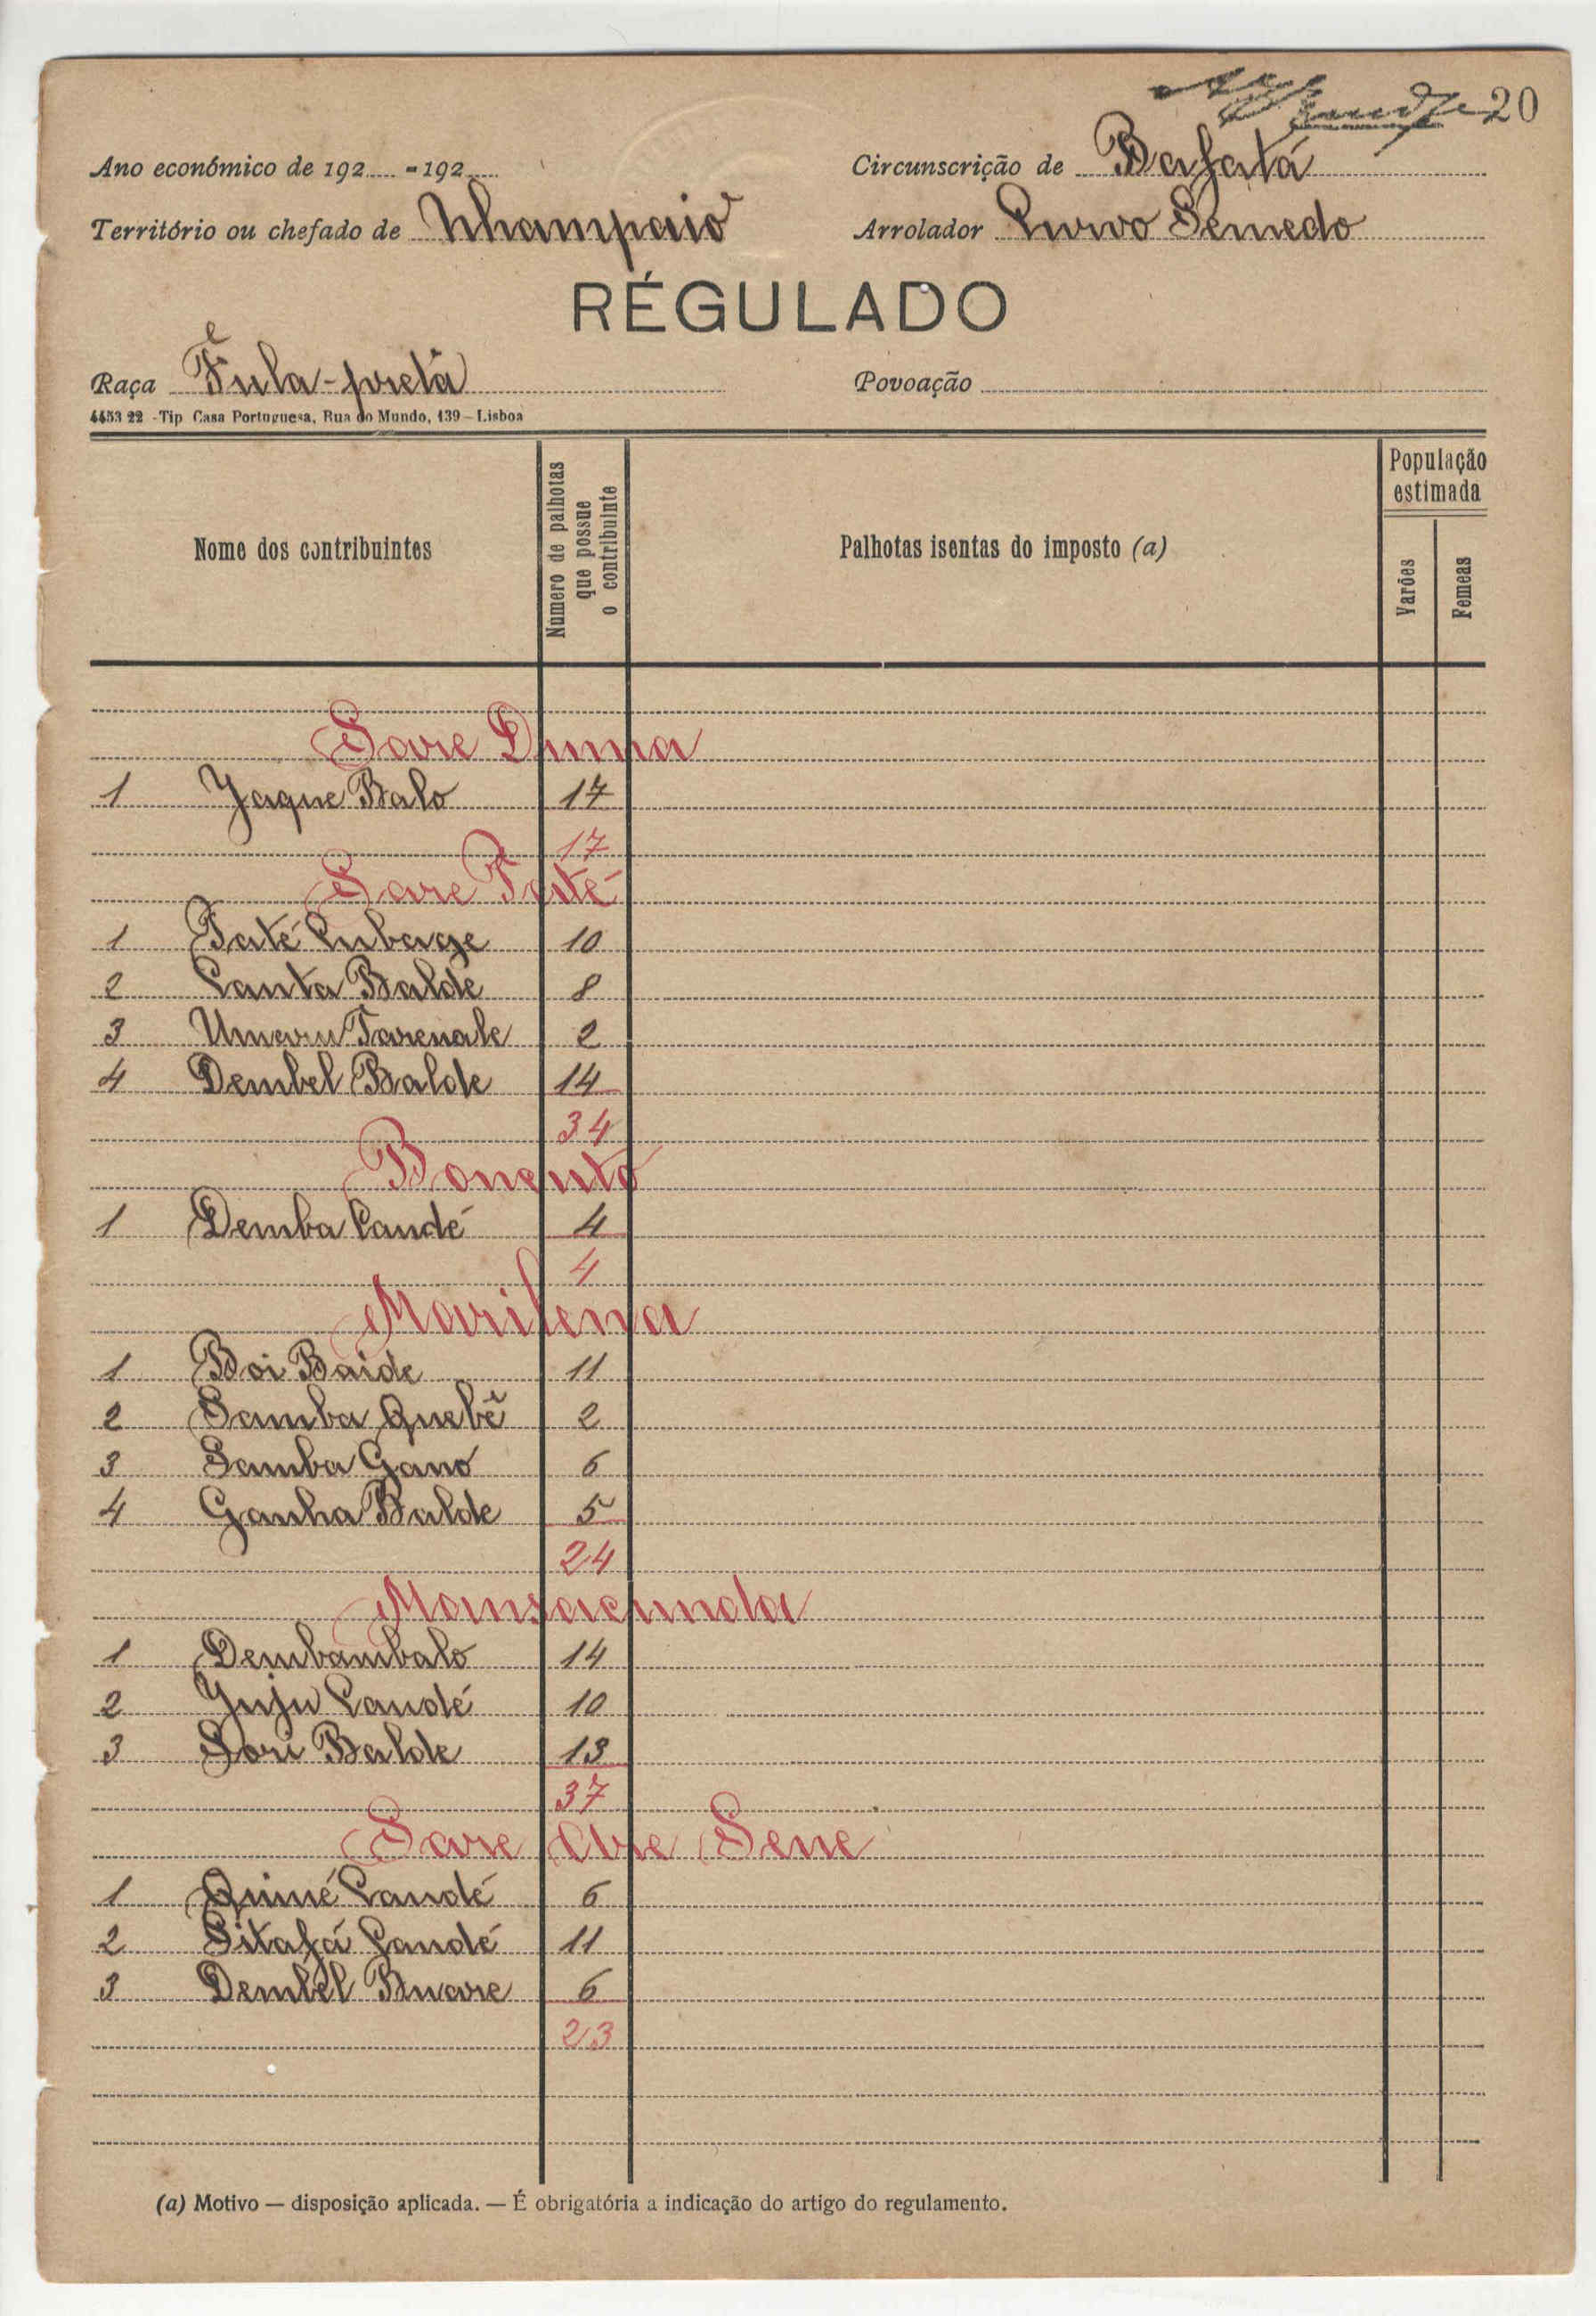 20
Ano económico de 192..... - 192.....
Circunscrição de Bafatá
Território ou chefado de Nhampaio
Arrolador Curvo Semedo
RÉGULADO
Raça Fula-preta
Povoação
4453 22 - Tip Casa Portuguesa, Rua do Mundo, 139 - Lisboa
Nome dos contribuintes
Numero de palhotas que possue o contribuinte
Palhotas isentas do imposto (a)
População estimada
Varões
Femeas
Sare Dunna
1 Jaque Balo 17
17
Sare Paté
1 Paté Cubage 10
2 Canta Balde 8
3 Umaru Tarenale 2
4 Dembel Balde 14
34
Bonento
1 Demba Candé 4
4
Marilena
1 Boi Baide 11
2 Samba Quebê 2
3 Samba Gano 6
4 Ganha Balde 5
24
Mansacunda
1 Dembambalo 14
2 Juju Candé 10
3 Sori Balde 13
37
Sare Abe Sene
1 Quimé Candé 6
2 Sitafá Candé 11
3 Dembel Buare 6
23
(a) Motivo — disposição aplicada. — É obrigatória a indicação do artigo do regulamento.